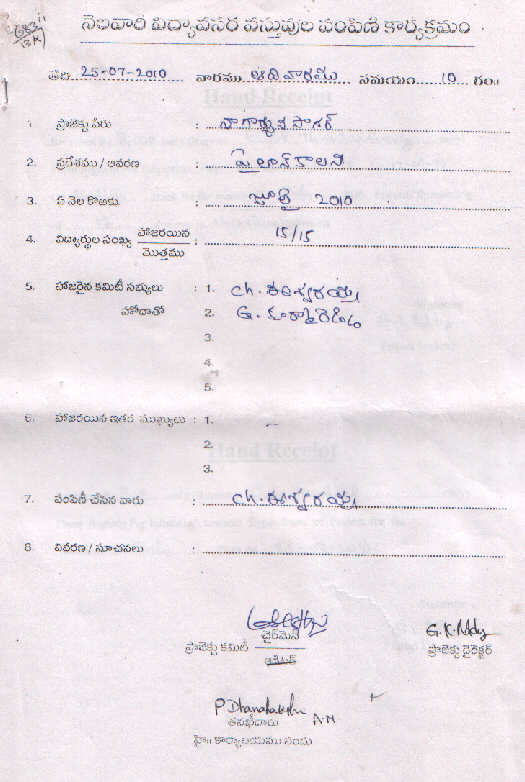 నెలవారీ విద్యావసర వస్తువుల పంపిణీ కార్యక్రమం
తేది 25-07-2010 వారము ఆదివారము సమయం 10 గం॥
Hand Receipt
1. ప్రాజెక్టు పేరు : నాగార్జున సాగర్
2. ప్రదేశము / ఆవరణ : పైలాన్ కాలని
3. ఏ నెల కొఱకు : జూలై 2010
4. విద్యార్థుల సంఖ్య హాజరయిన / మొత్తము : 15/15
5. హాజరైన కమిటీ సభ్యులు : 1. Ch. ఈశ్వరయ్య
హోదాతో 2. G. కృష్ణారెడ్డి
3.
4.
5.
6. హాజరయిన ఇతర ముఖ్యులు : 1.
2.
Hand Receipt
3.
7. పంపిణీ చేసిన వారు : Ch. ఈశ్వరయ్య
8 వివరణ / సూచనలు :
చైర్‌మెన్ G.K.Reddy
ప్రాజెక్టు కమిటీ ప్రాజెక్టు డైరెక్టర్
P Dhanalakshmi
తనిఖీదారు A.M
హై॥ కార్యాలయము నందు